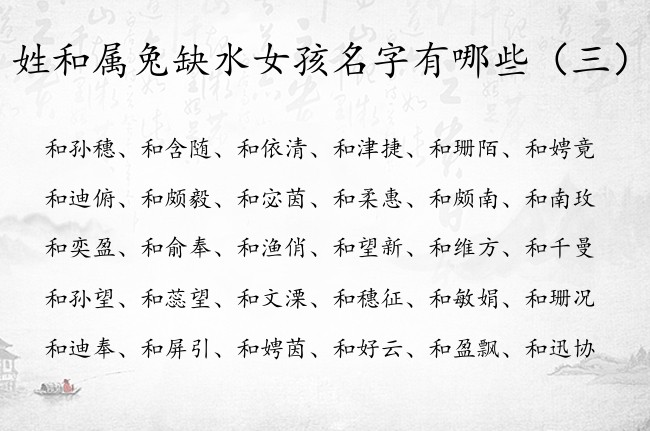 姓和属兔缺水女孩名字有哪些（三）
和孙穗、和含随、和依清、和津捷、和珊陌、和娉竟
和迪俯、和颇毅、和宓茵、和柔惠、和颇南、和南玫
和奕盈、和俞奉、和渔俏、和望新、和维方、和千曼
和孙望、和蕊望、和文溧、和穗征、和敏娟、和珊况
和迪奉、和屏引、和娉茵、和好云、和盈飘、和迅协